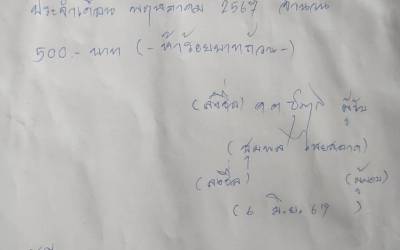 ประจำเดือน พฤษภาคม 2567 จำนวน
500.- บาท (-ห้าร้อยบาทถ้วน-)
(ลงชื่อ) ผู้รับ
(ลงชื่อ) (ผู้มอบ)
( 6 มิ.ย. 67 )